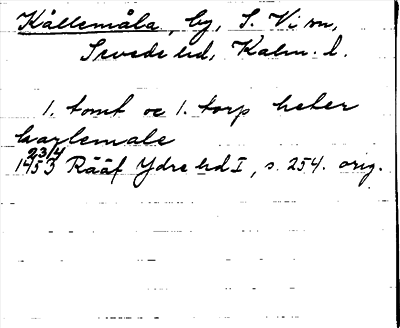 Källemåla, by, S. Vi sn,
Sevede hd, Kalm. l.
1. tomt oc 1. torp heter
karlemale
23/4
1453 Rääf Ydre hd I, s. 254. orig.